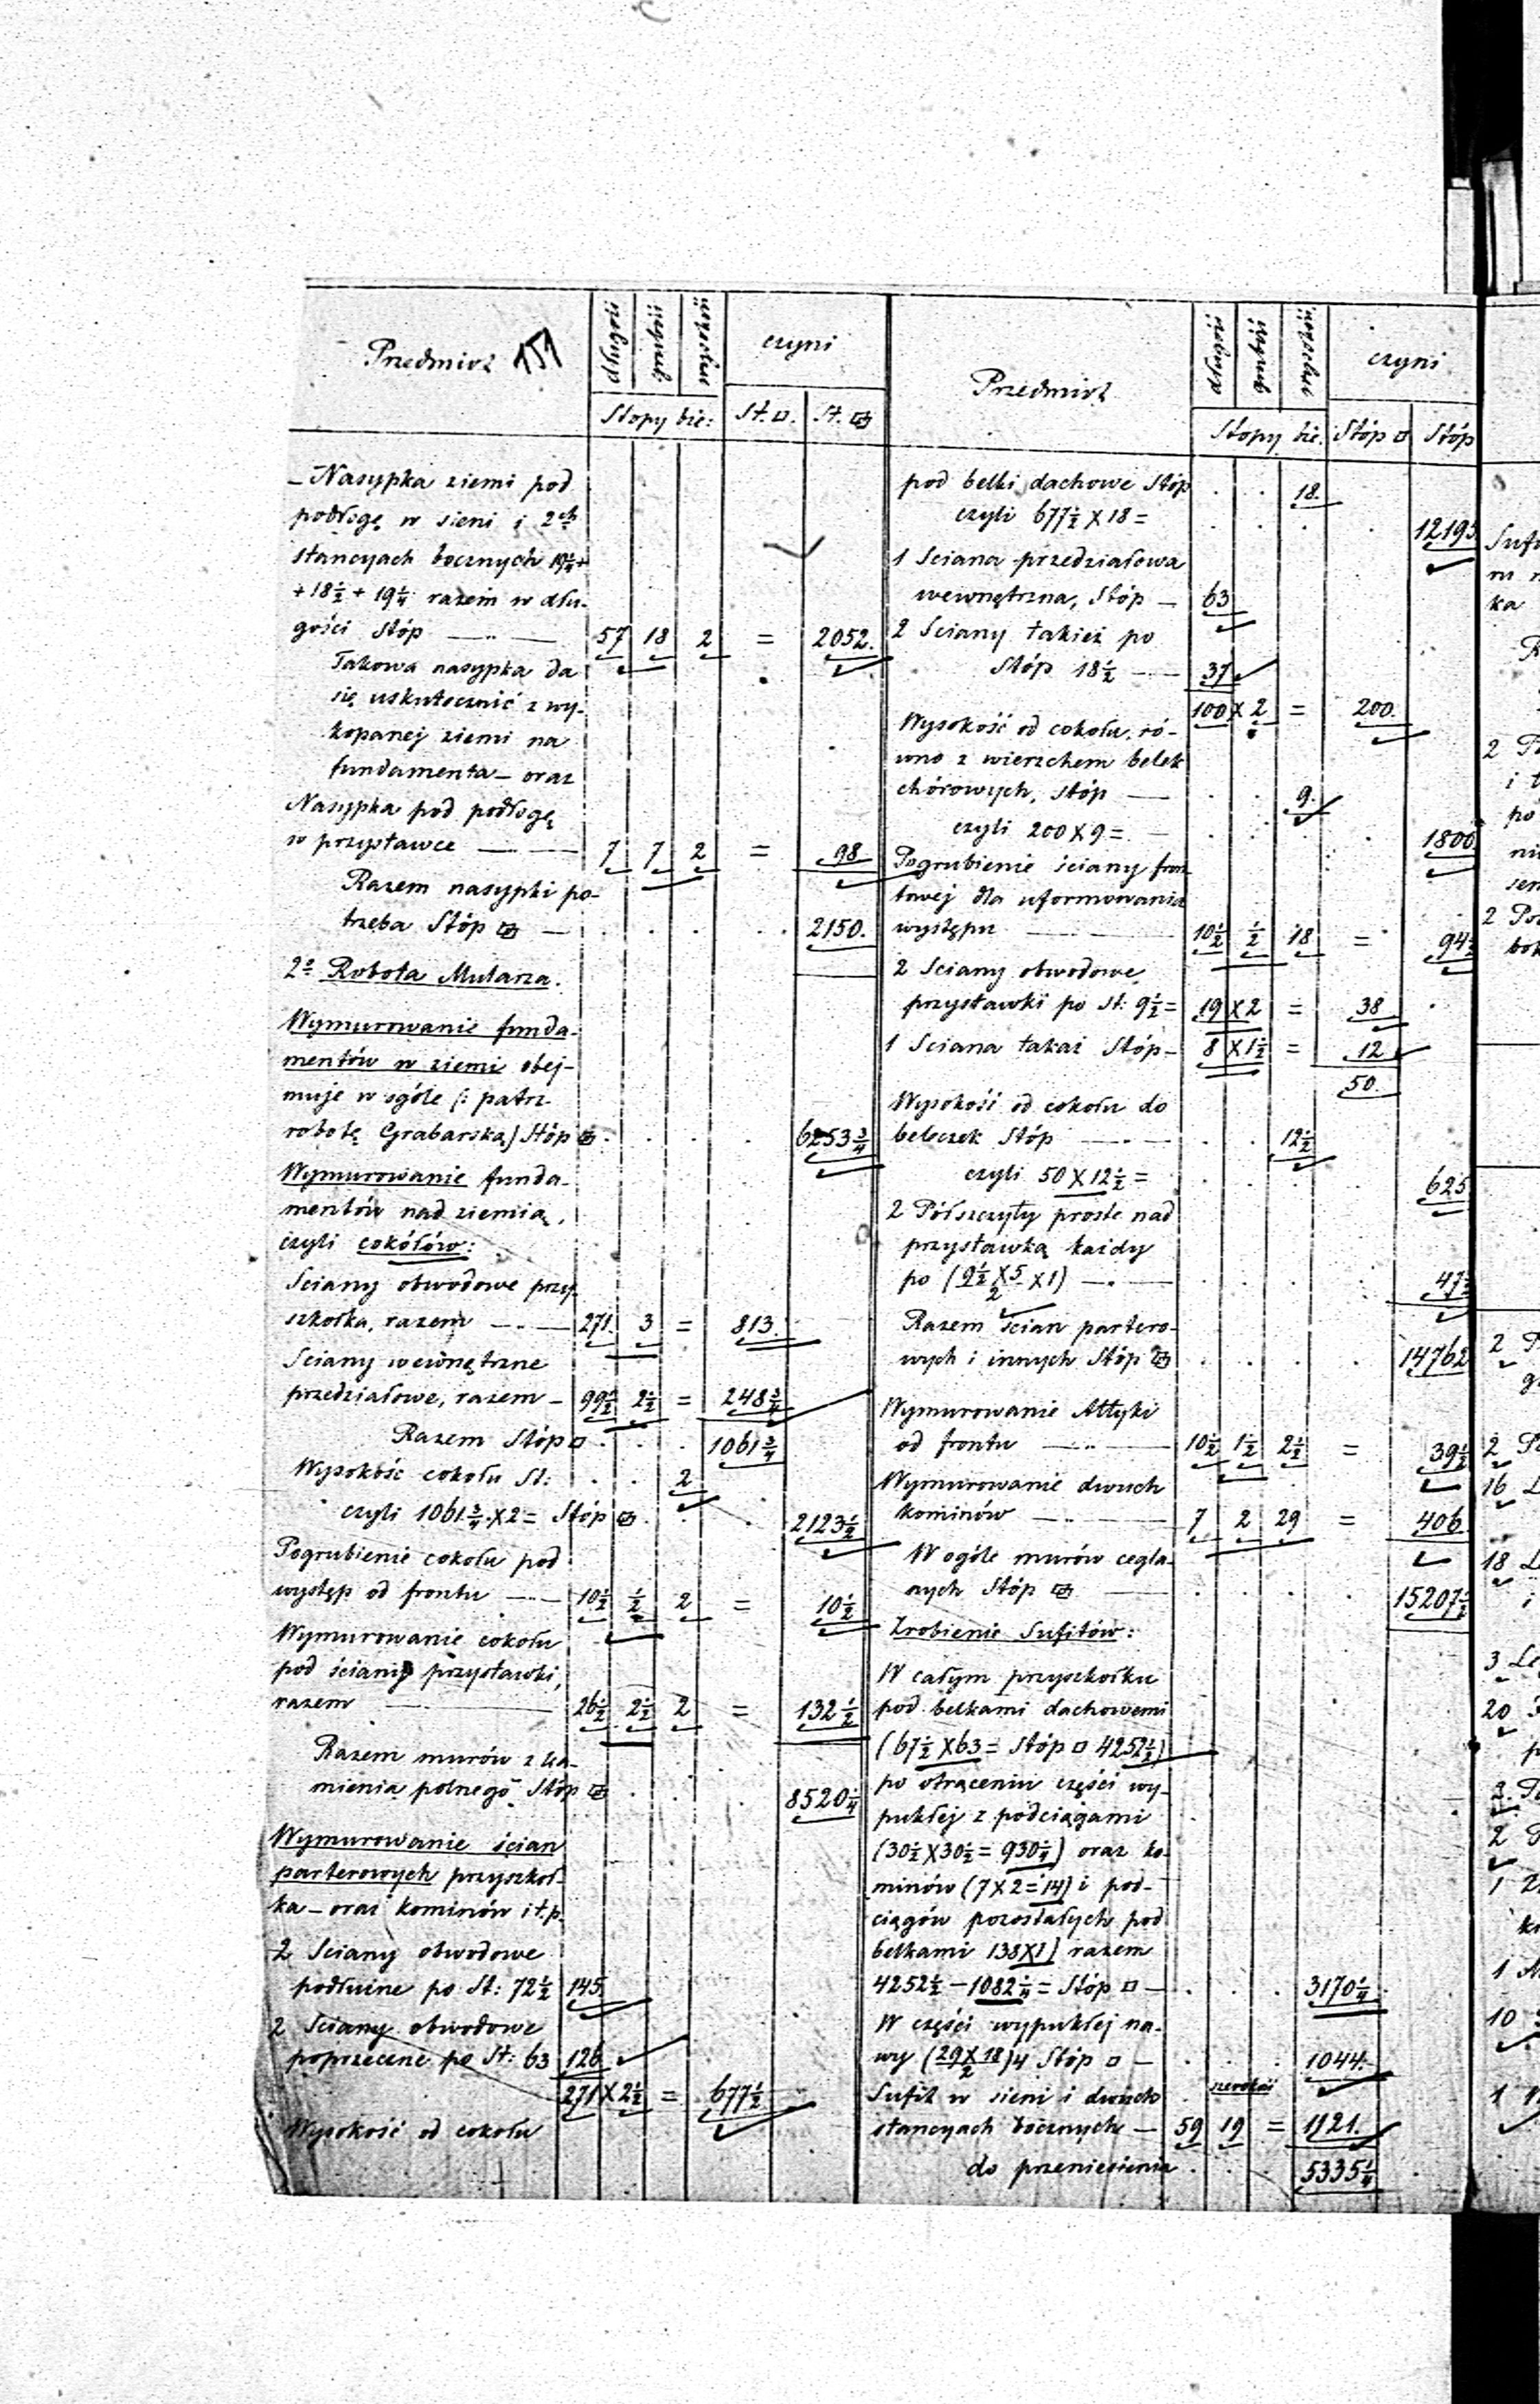 Przedmiot 151 długość grubość wysokość czyni
Stopy bie: St. □. St.
– Nasypka ziemi pod
podłogę w sieni i 2ch
stancyach bocznych 19¼ +
+ 18½ + 19¼ razem w dłu-
gości Stóp — 57 18 2 = 2052.
Takowa nasypka da
się uskutecznić z wy-
kopanej ziemi na
fundamenta – oraz
Nasypka pod podłogę
w przystawce — 7 7 2 = 98
Razem nasypki po-
trzeba Stóp — 2150.
2o Robota Mularza.
Wymurowanie funda-
mentów w ziemi obej-
muje w ogóle (: patrz
robotę Grabarską) Stóp 6253¾
Wymurowanie funda-
mentów nad ziemią,
czyli cokółów:
Sciany obwodowe przy-
szkołka, razem — 271. 3 = 813.
Sciany wewnętrzne
przedziałowe, razem – 99½ 2½ = 248¾
Razem Stóp □ 1061¾
Wysokość cokołu St: 2
czyli 1061¾ × 2 = Stóp 2123½
Pogrubienie cokołu pod
występ od frontu — 10½ ½ 2 = 10½
Wymurowanie cokołu
pod ściany przystawki,
razem — 26½ 2½ 2 = 132½
Razem murów z ka-
mienia polnego Stóp 8520¼
Wymurowanie ścian
parterowych przyszkoł-
ka – oraz kominów i t.p.
2 Sciany obwodowe
podłużne po St: 72½ 145
2 Sciany obwodowe
poprzeczne po St: 63 126
271 × 2½ = 677½
Wysokość od cokołu
Przedmiot długość grubość wysokość czyni
Stopy bie. Stóp □ Stóp
pod belki dachowe Stóp 18.
czyli 677½ × 18 = 12195
1 Sciana przedziałowa
wewnętrzna, Stóp – 63
2 Sciany takież po
Stóp 18½ — 37
100 × 2 = 200.
Wysokość od cokołu, ró-
wno z wierzchem belek
chórowych, Stóp — 9.
czyli 200 × 9 = 1800
Pogrubienie ściany fron-
towej dla uformowania
występu — 10½ ½ 18 = 94½
2 Sciany obwodowe
przystawki po St: 9½ = 19 × 2 = 38
1 Sciana takaż Stóp – 8 × 1½ = 12
50.
Wysokość od cokołu do
beleczek Stóp — 12½
czyli 50 × 12½ = 625
2 Półszczyty proste nad
przystawką każdy
po (9½ × 5/2 × 1) — 47½
Razem ścian partero-
wych i innych Stóp 14762
Wymurowanie Attyki
od frontu — 10½ 1½ 2½ = 39½
Wymurowanie dwuch
kominów — 7 2 29 = 406
W ogóle murów cegla-
nych Stóp — 15207½
Zrobienie Sufitów:
W całym przyszkołku
pod belkami dachowemi
(67½ × 63 = Stóp □ 4252½)
po otrąceniu części wy-
pukłej z podciągami
(30½ × 30½ = 930¼) oraz ko-
minów (7 × 2 = 14) i pod-
ciągów pozostałych pod
belkami 138 × 1) razem
4252½ – 1082¼ = Stóp □ – 3170¼
W części wypukłej na-
wy (29 × 18/2) 4 Stóp □ – 1044.
szerokość
Sufit w sieni i dwuch
stancyach bocznych — 59 19 = 1121.
do przeniesienia 5335¼
ka
2
i
po
2
2
2
16
18
i
3
20
2
2
1
1
10
1